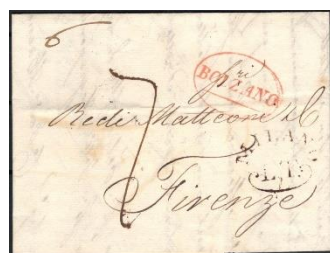 6
BOLZANO
Redi Matteoni & C
7
Firenze